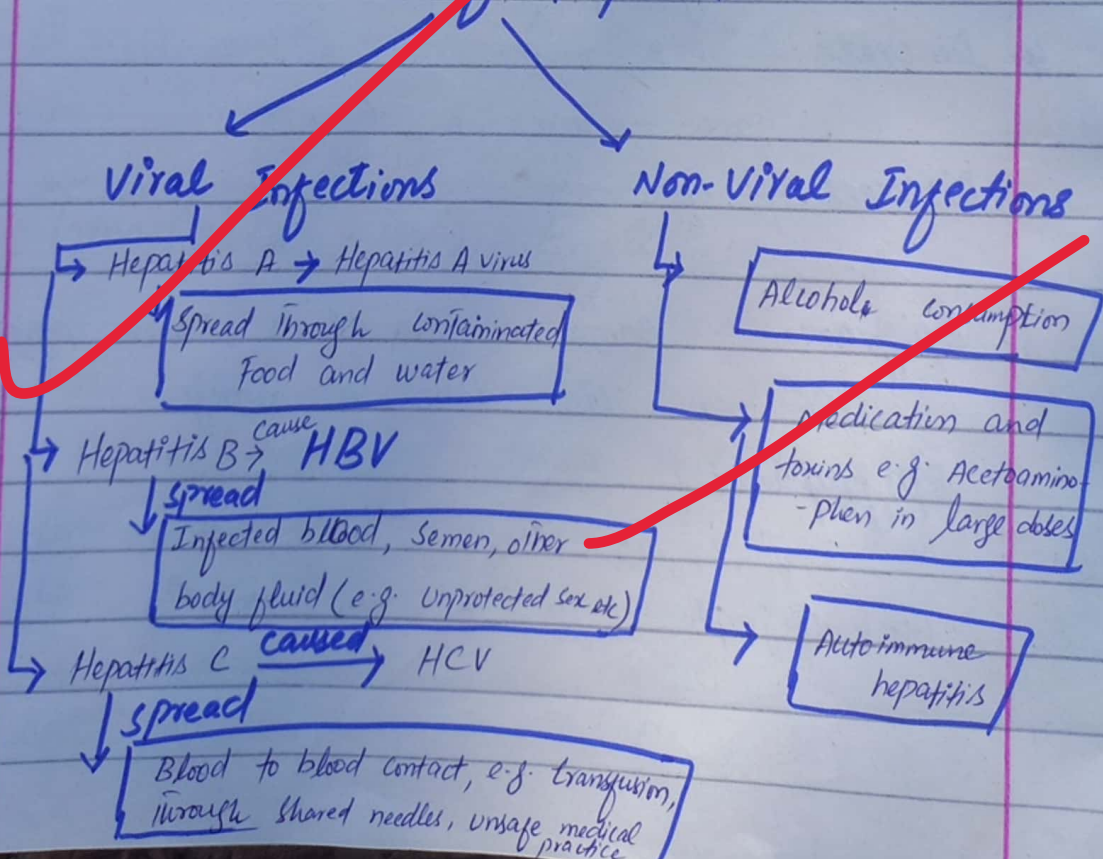 Viral Infections
Hepatitis A → Hepatitis A virus
Spread through contaminated
Food and water
Hepatitis B → cause HBV
spread
Infected blood, semen, other
body fluid (e.g. unprotected sex etc)
Hepatitis C caused HCV
spread
Blood to blood contact, e.g. transfusion,
through shared needles, unsafe medical
practice
Non-Viral Infections
Alcohol consumption
Medication and
toxins e.g. Acetoamino-
-phen in large doses
Autoimmune
hepatitis